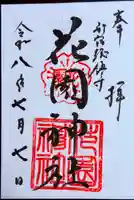 奉拝
新宿総鎮守
花園神社
令和八年七月七日